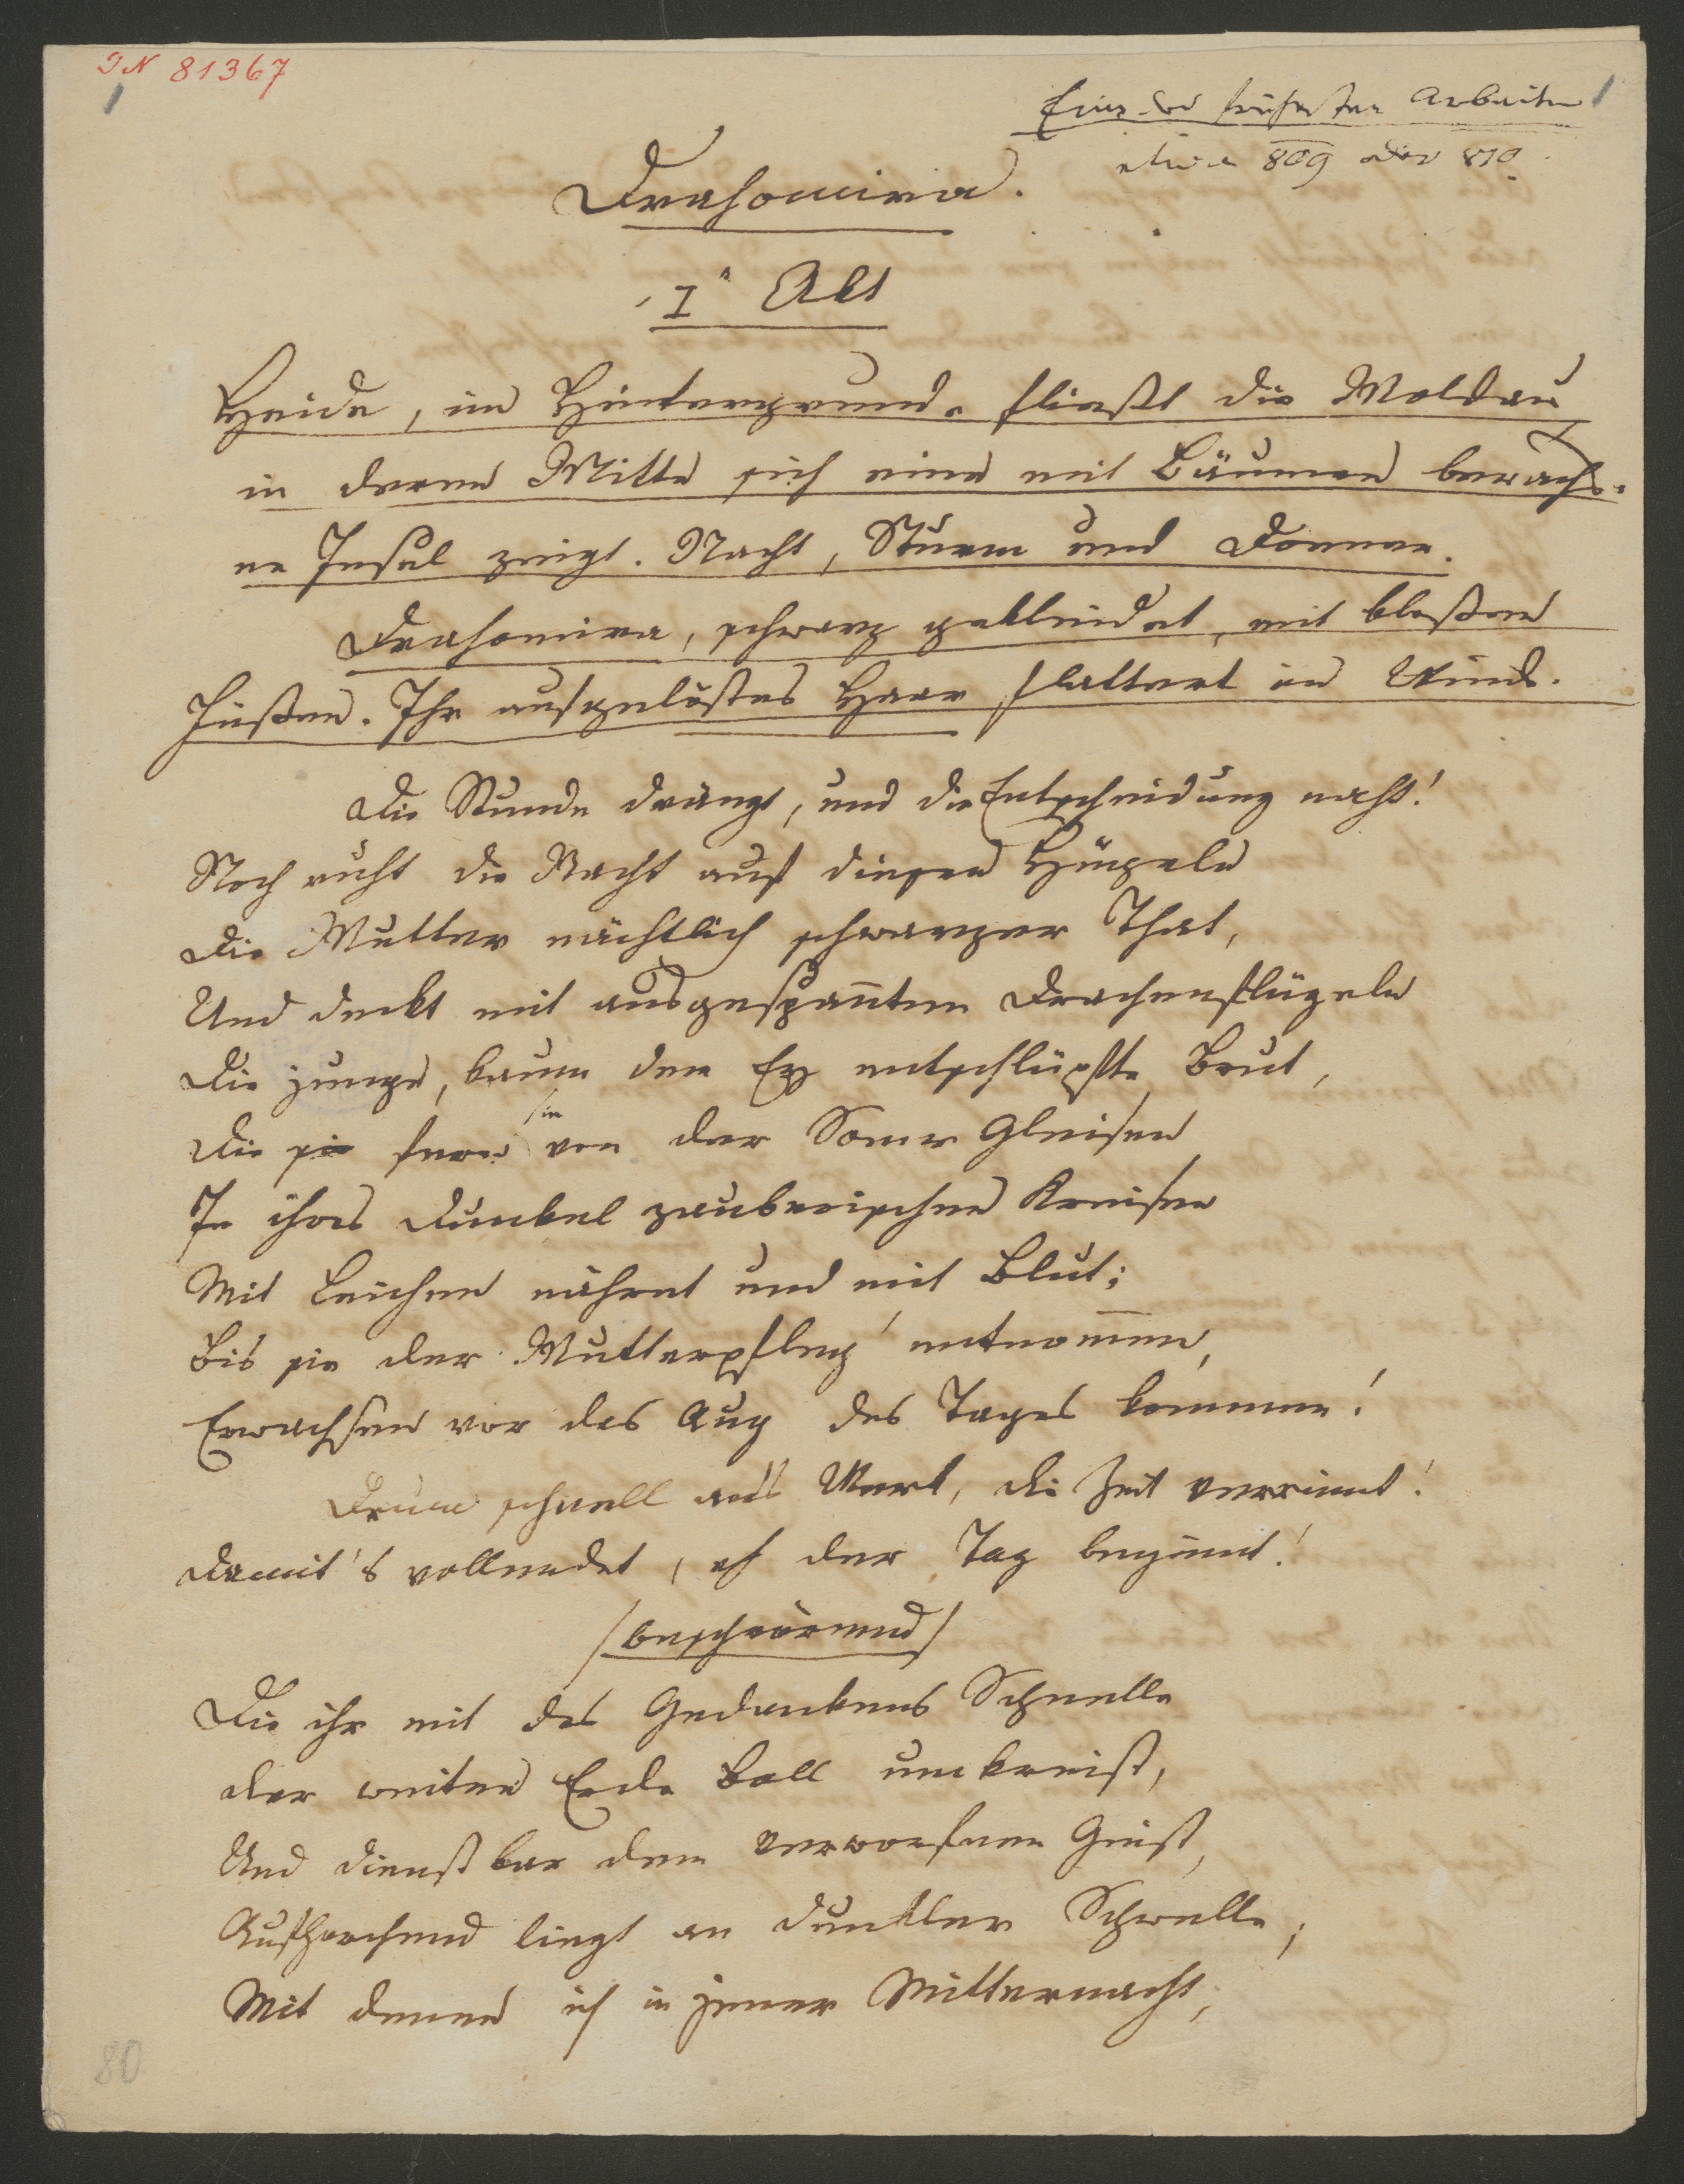 IN 81367
1
Eine der frühesten Arbeiten
etwa 809 oder 810.
Drahomira.
I" Akt
Heide, im Hintergrunde fließt die Moldau
in deren Mitte sich eine mit Bäumen bewachs-
ne Insel zeigt. Nacht, Sturm und Donner.
Drahomira, schwarz gekleidet, mit bloßen
Füßen. Ihr aufgelöstes Haar flattert im Winde.
Die Stunde drängt, und die Entscheidung naht!
Noch ruht die Nacht auf diesen Hügeln
Die Mutter nächtlich schwarzer That,
Und deckt mit ausgespañten Drachenflügeln
Die junge, kaum dem Ey entschlüpfte Brut,
Die sie fern von der Sonne Gleisen
sie
In ihres Dunkel zauberischen Kreisen
Mit Leichen nähret und mit Blut;
Bis sie der Mutterpfleg' entnom̄en,
Erwachsen vor das Aug des Tages kommen!
Drum schnell ans Werk, die Zeit verrinnt!
Damit's vollendet, eh der Tag beginnt!
/beschwörend/
Die ihr mit des Gedankens Schnelle
Der weiten Erde Ball umkreist,
Und dienstbar dem verworfnen Geist,
Aufhorchend liegt an dunkler Schwelle;
Mit denen ich in jener Mitternacht,
80